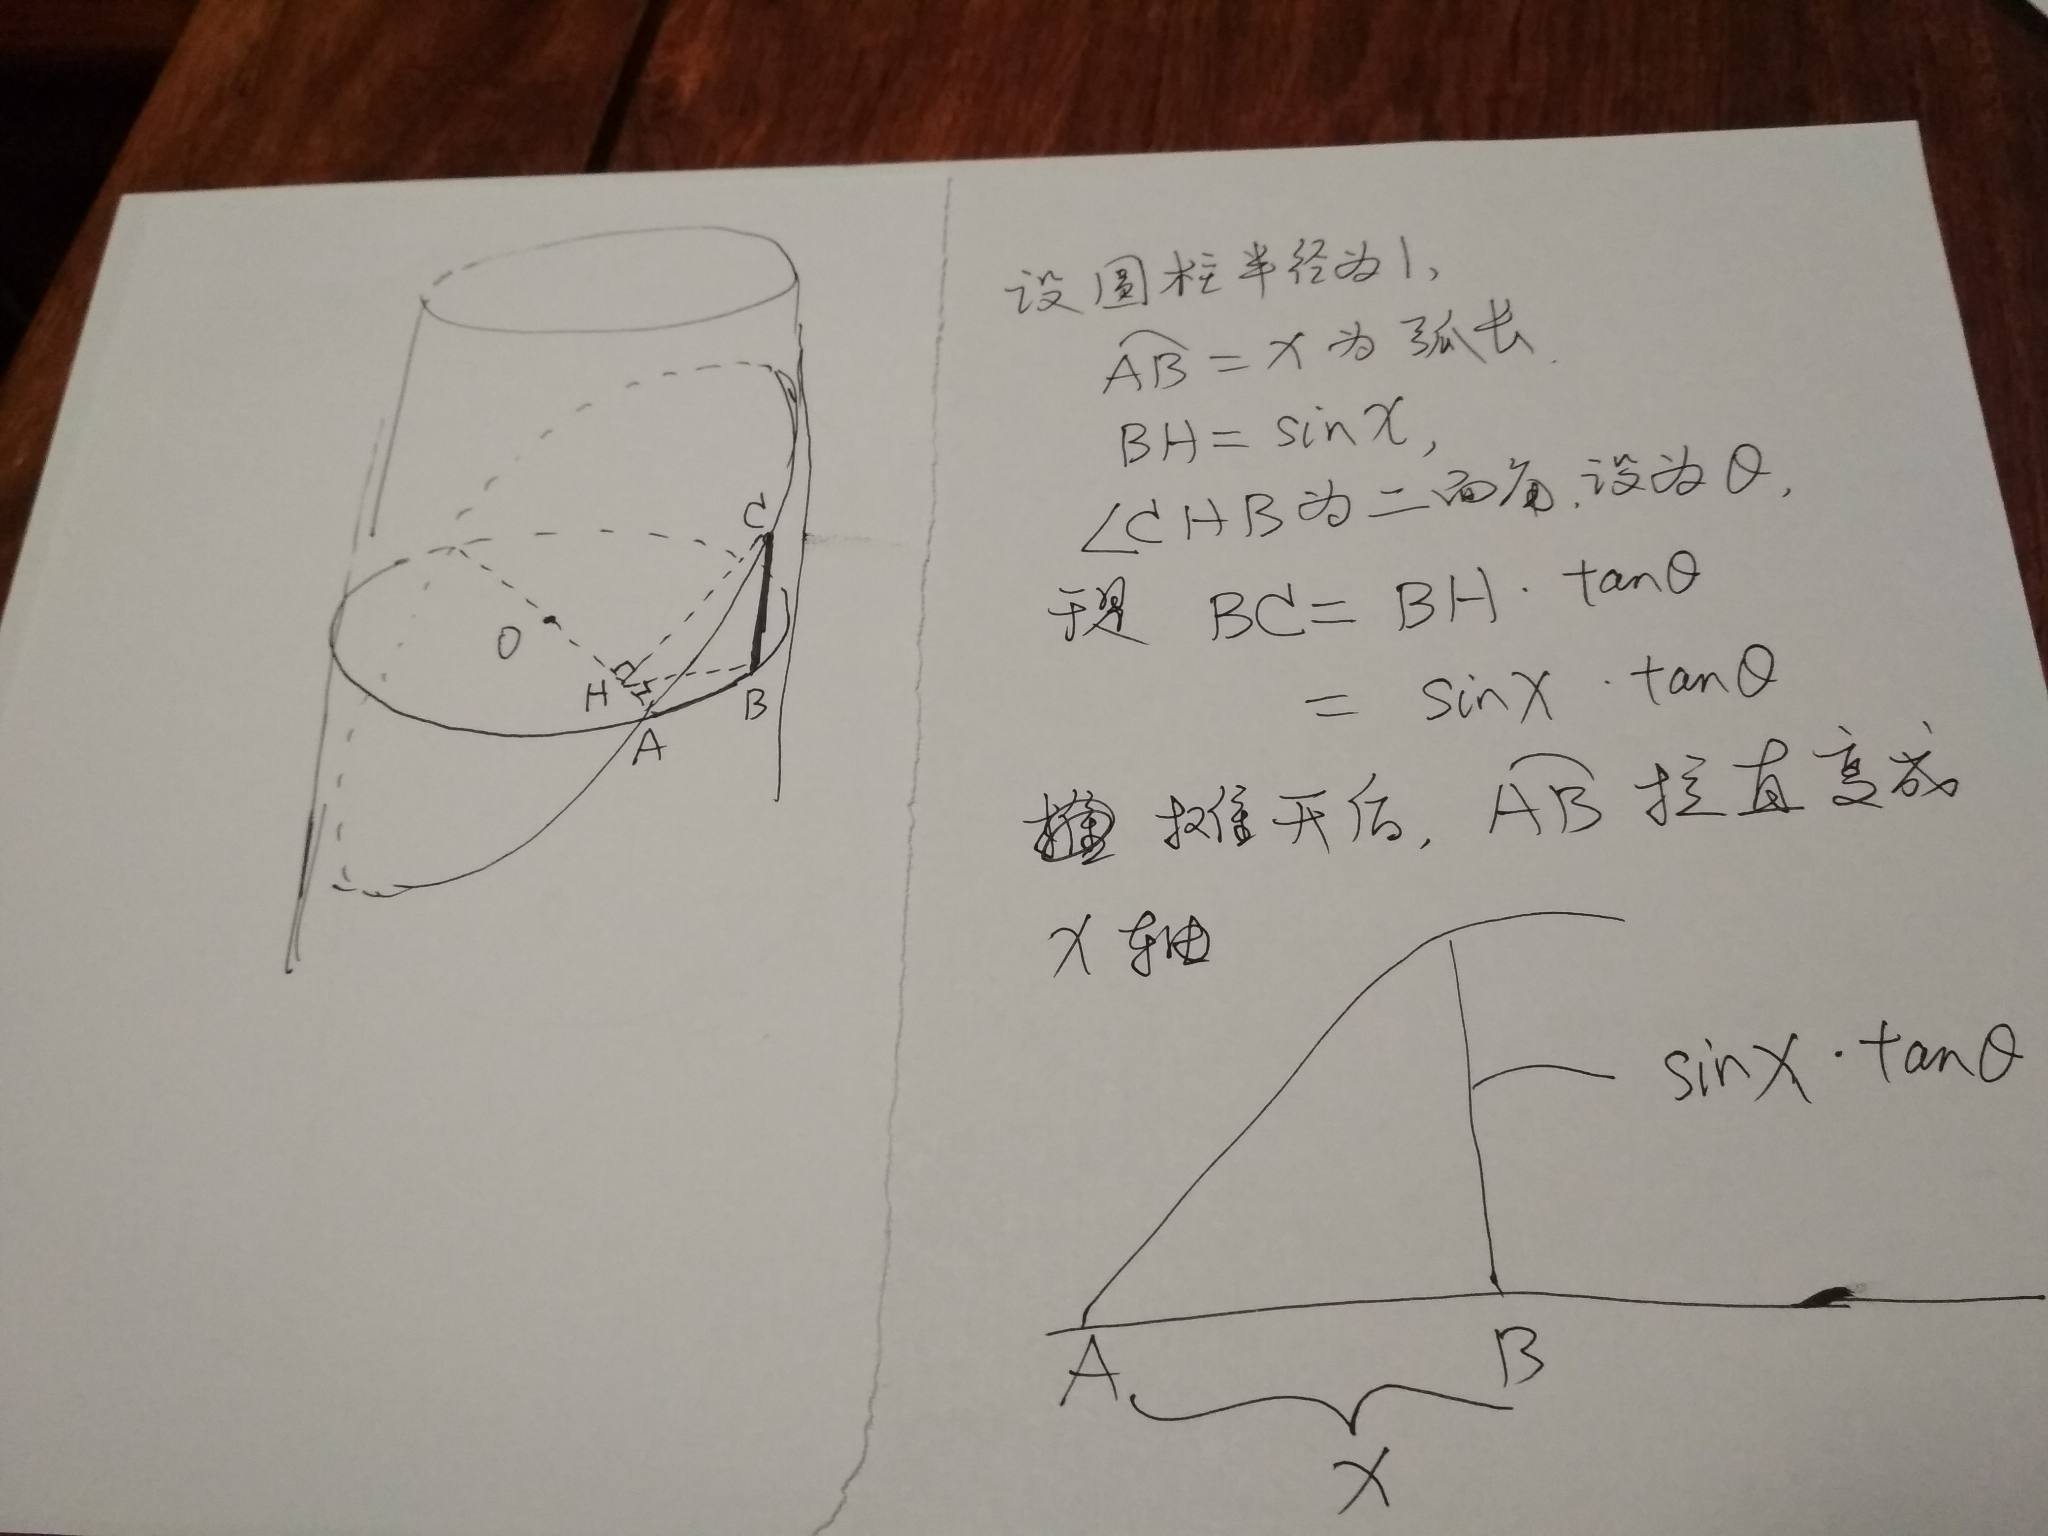 C
O
H
B
A
设圆柱半径为1,
AB = x 为弧长.
BH = sinx,
∠CHB为二面角.设为θ,
于是 BC = BH · tanθ
= sinx · tanθ
摊开后, AB 拉直变成
x 轴
sinx · tanθ
A
B
x